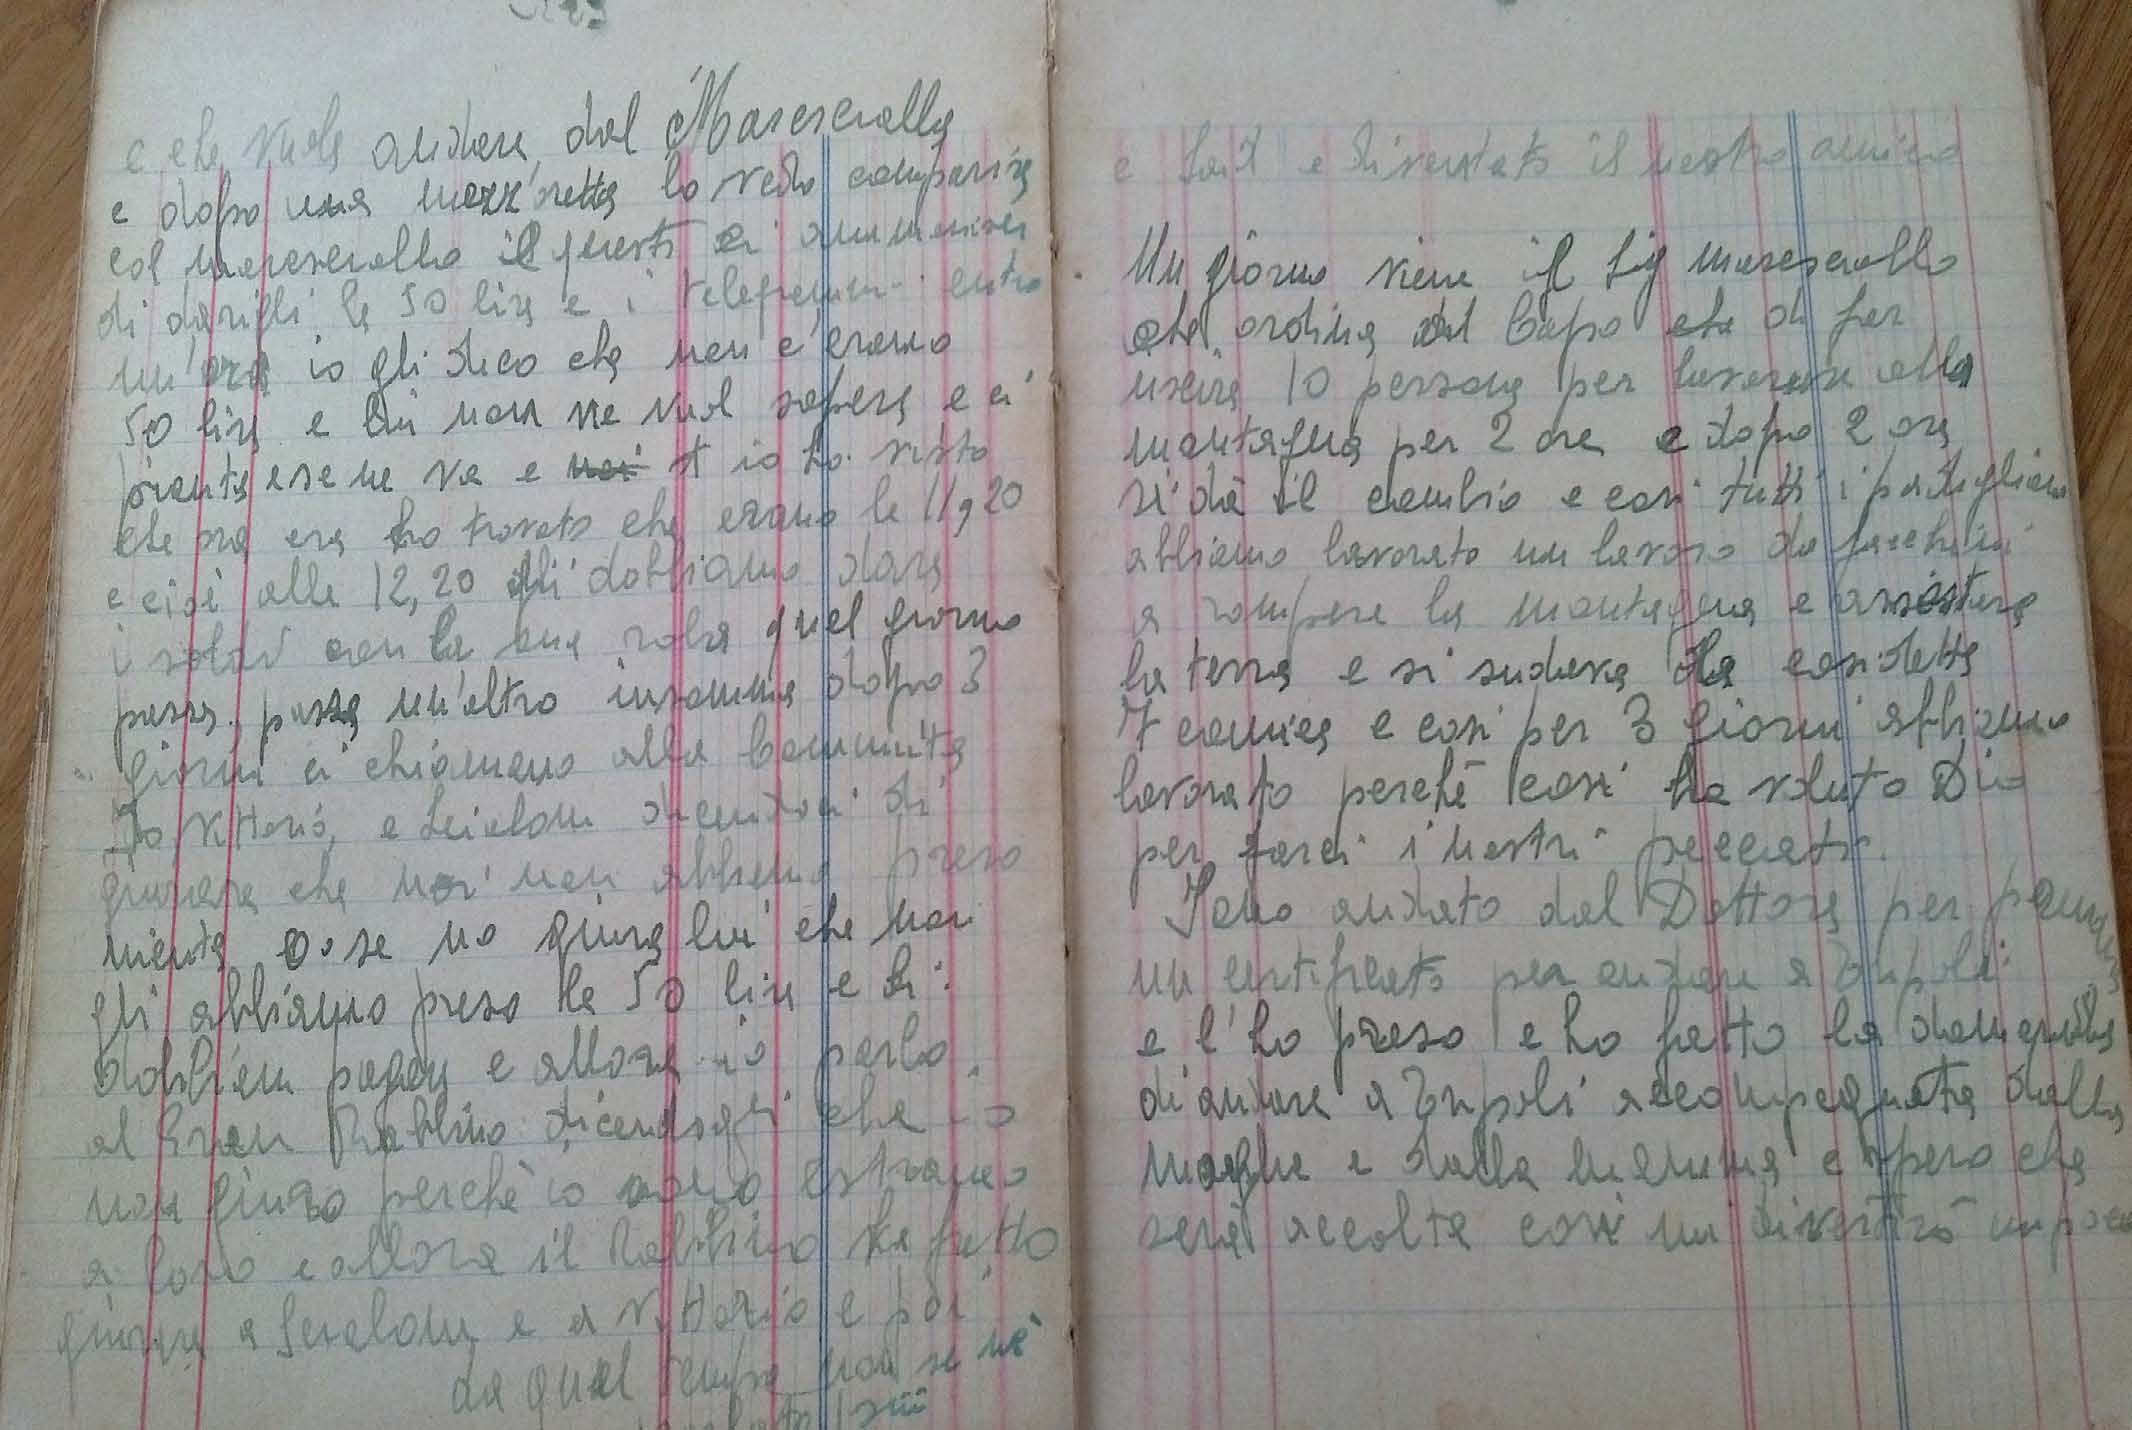 e che vuole andare dal Maresciallo
e dopo una mezz'oretta lo vedo comparire
col maresciallo il questi ci
di dargli le 50 lire e i entro
un'ora io gli dico che non c'erano
50 lire e lui non ne vuol sapere e ci
pianta e se ne va e noi io ho visto
che ora era ho trovato che erano le 11,20
e cioè alle 12,20 gli dobbiamo dare
i soldi con la sua roba quel giorno
passa, passa un'altro insomma dopo 3
giorni ci chiamano alla Comunità
Io Vittorio, e dicendoci di
giurare che noi non abbiamo preso
niente o se no giura lui che noi
gli abbiamo preso le 50 lire e li
dobbiam pagare e allora io parlo
al Gran Rabbino dicendogli che io
non giuro perchè io sono estraneo
a loro e allora il Rabbino ha fatto
giurare a e a Vittorio e poi
da quel tempo non se n'è
e è diventato il nostro amico
Un giorno viene il Sig maresciallo
che ordina al Capo che di far
uscire 10 persone per lavorare alla
montagna per 2 ore e dopo 2 ore
si dà il cambio e così tutti i padiglioni
abbiamo lavorato un lavoro da facchini
a rompere la montagna e
la terra e si sudava la cosidetta
7 camice e così per 3 giorni abbiamo
lavorato perchè così ha voluto Dio
per farci i nostri peccati.
Sono andato dal Dottore per
un certificato per andare a Empoli
e l'ho preso e ho fatto la domanda
di andare a Empoli accompagnata dalla
moglie e dalla mamma e spero che
sarà accolta così mi divertirò un poco